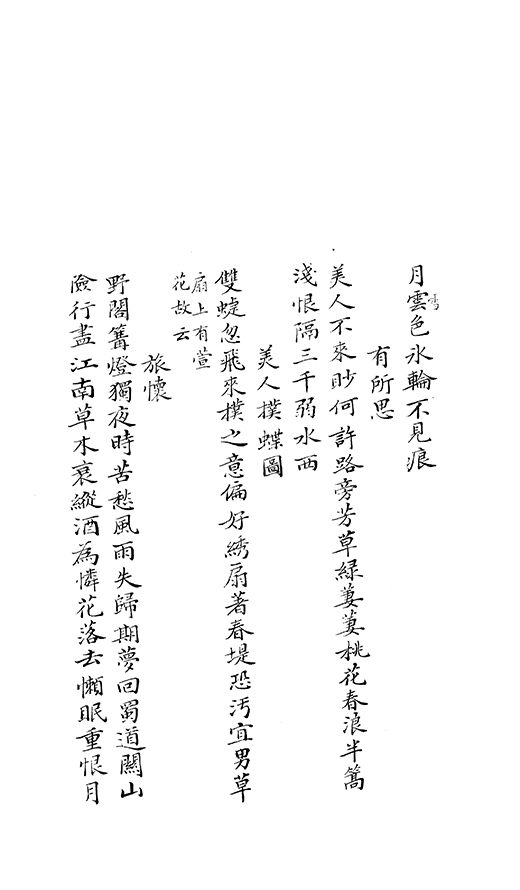 月雲色氷輪不見痕
有所思
美人不來眇何許路旁芳草緑萋萋桃花春浪半篙
淺恨隔三千弱水西
美人撲蝶圖
雙蜨忽飛來撲之意偏好綉扇著春堤恐汚宜男草
扇上有萱
花故云
旅懷
野閣篝燈獨夜時苦愁風雨失歸期夢回蜀道關山
險行盡江南草木衰縱酒為憐花落去懶眠重恨月